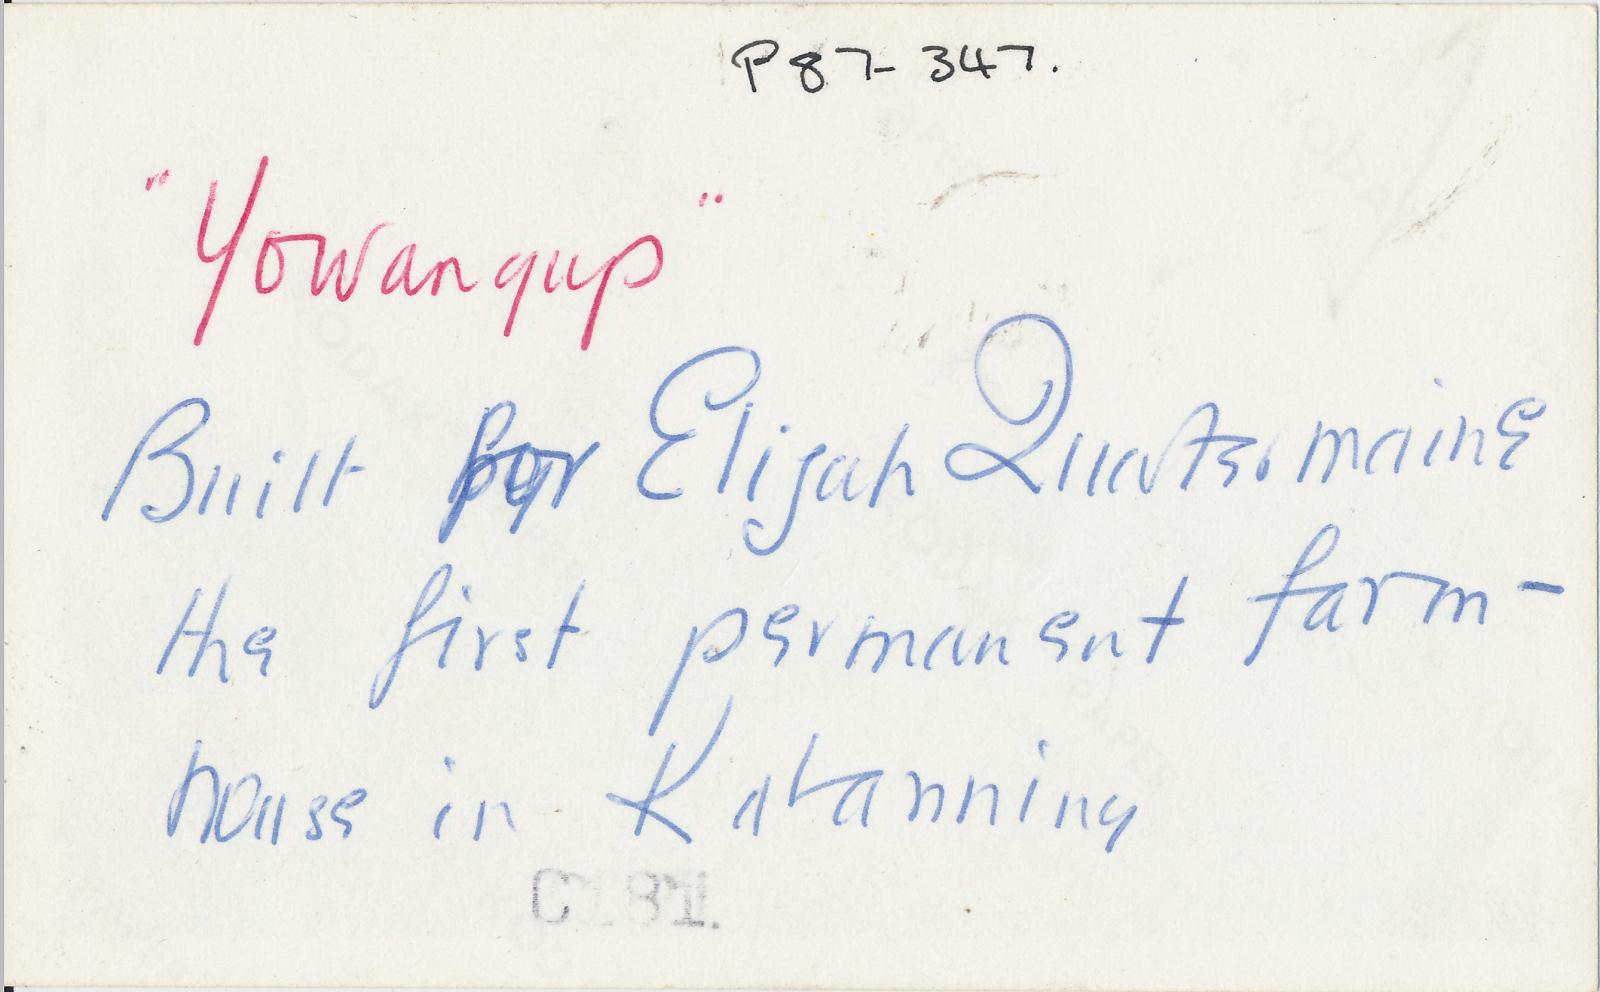 P87-347.
"Yowangup"
Built for Elijah Quartermaine
the first permanent farm-
house in Katanning